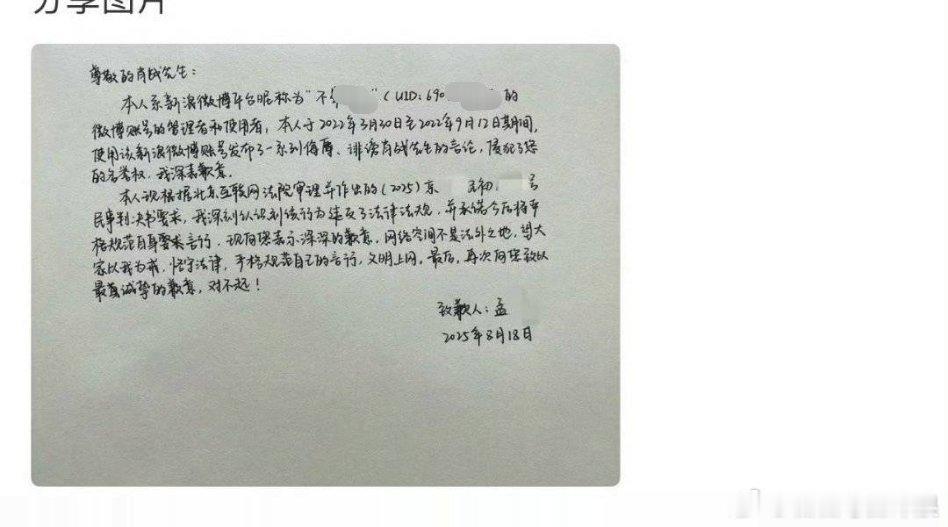 分享图片
尊敬的肖战先生：
本人系新浪微博平台昵称为“不 ”（UID：690 ）的
微博账号的管理者和使用者，本人于2022年3月30日至2022年9月12日期间，
使用该新浪微博账号发布了一系列侮辱、诽谤肖战先生的言论，侵犯了您
的名誉权，我深表歉意。
本人现根据北京互联网法院审理并作出的（2025）京 民初 号
民事判决书要求，我深刻认识到该行为违反了法律法规，并承诺今后将严
格规范自身要求言行，现向您表示深深的歉意，网络空间不是法外之地，望大
家以我为戒，恪守法律，严格规范自己的言行，文明上网。最后，再次向您致以
最真诚挚的歉意，对不起！
致歉人：孟
2025年8月18日